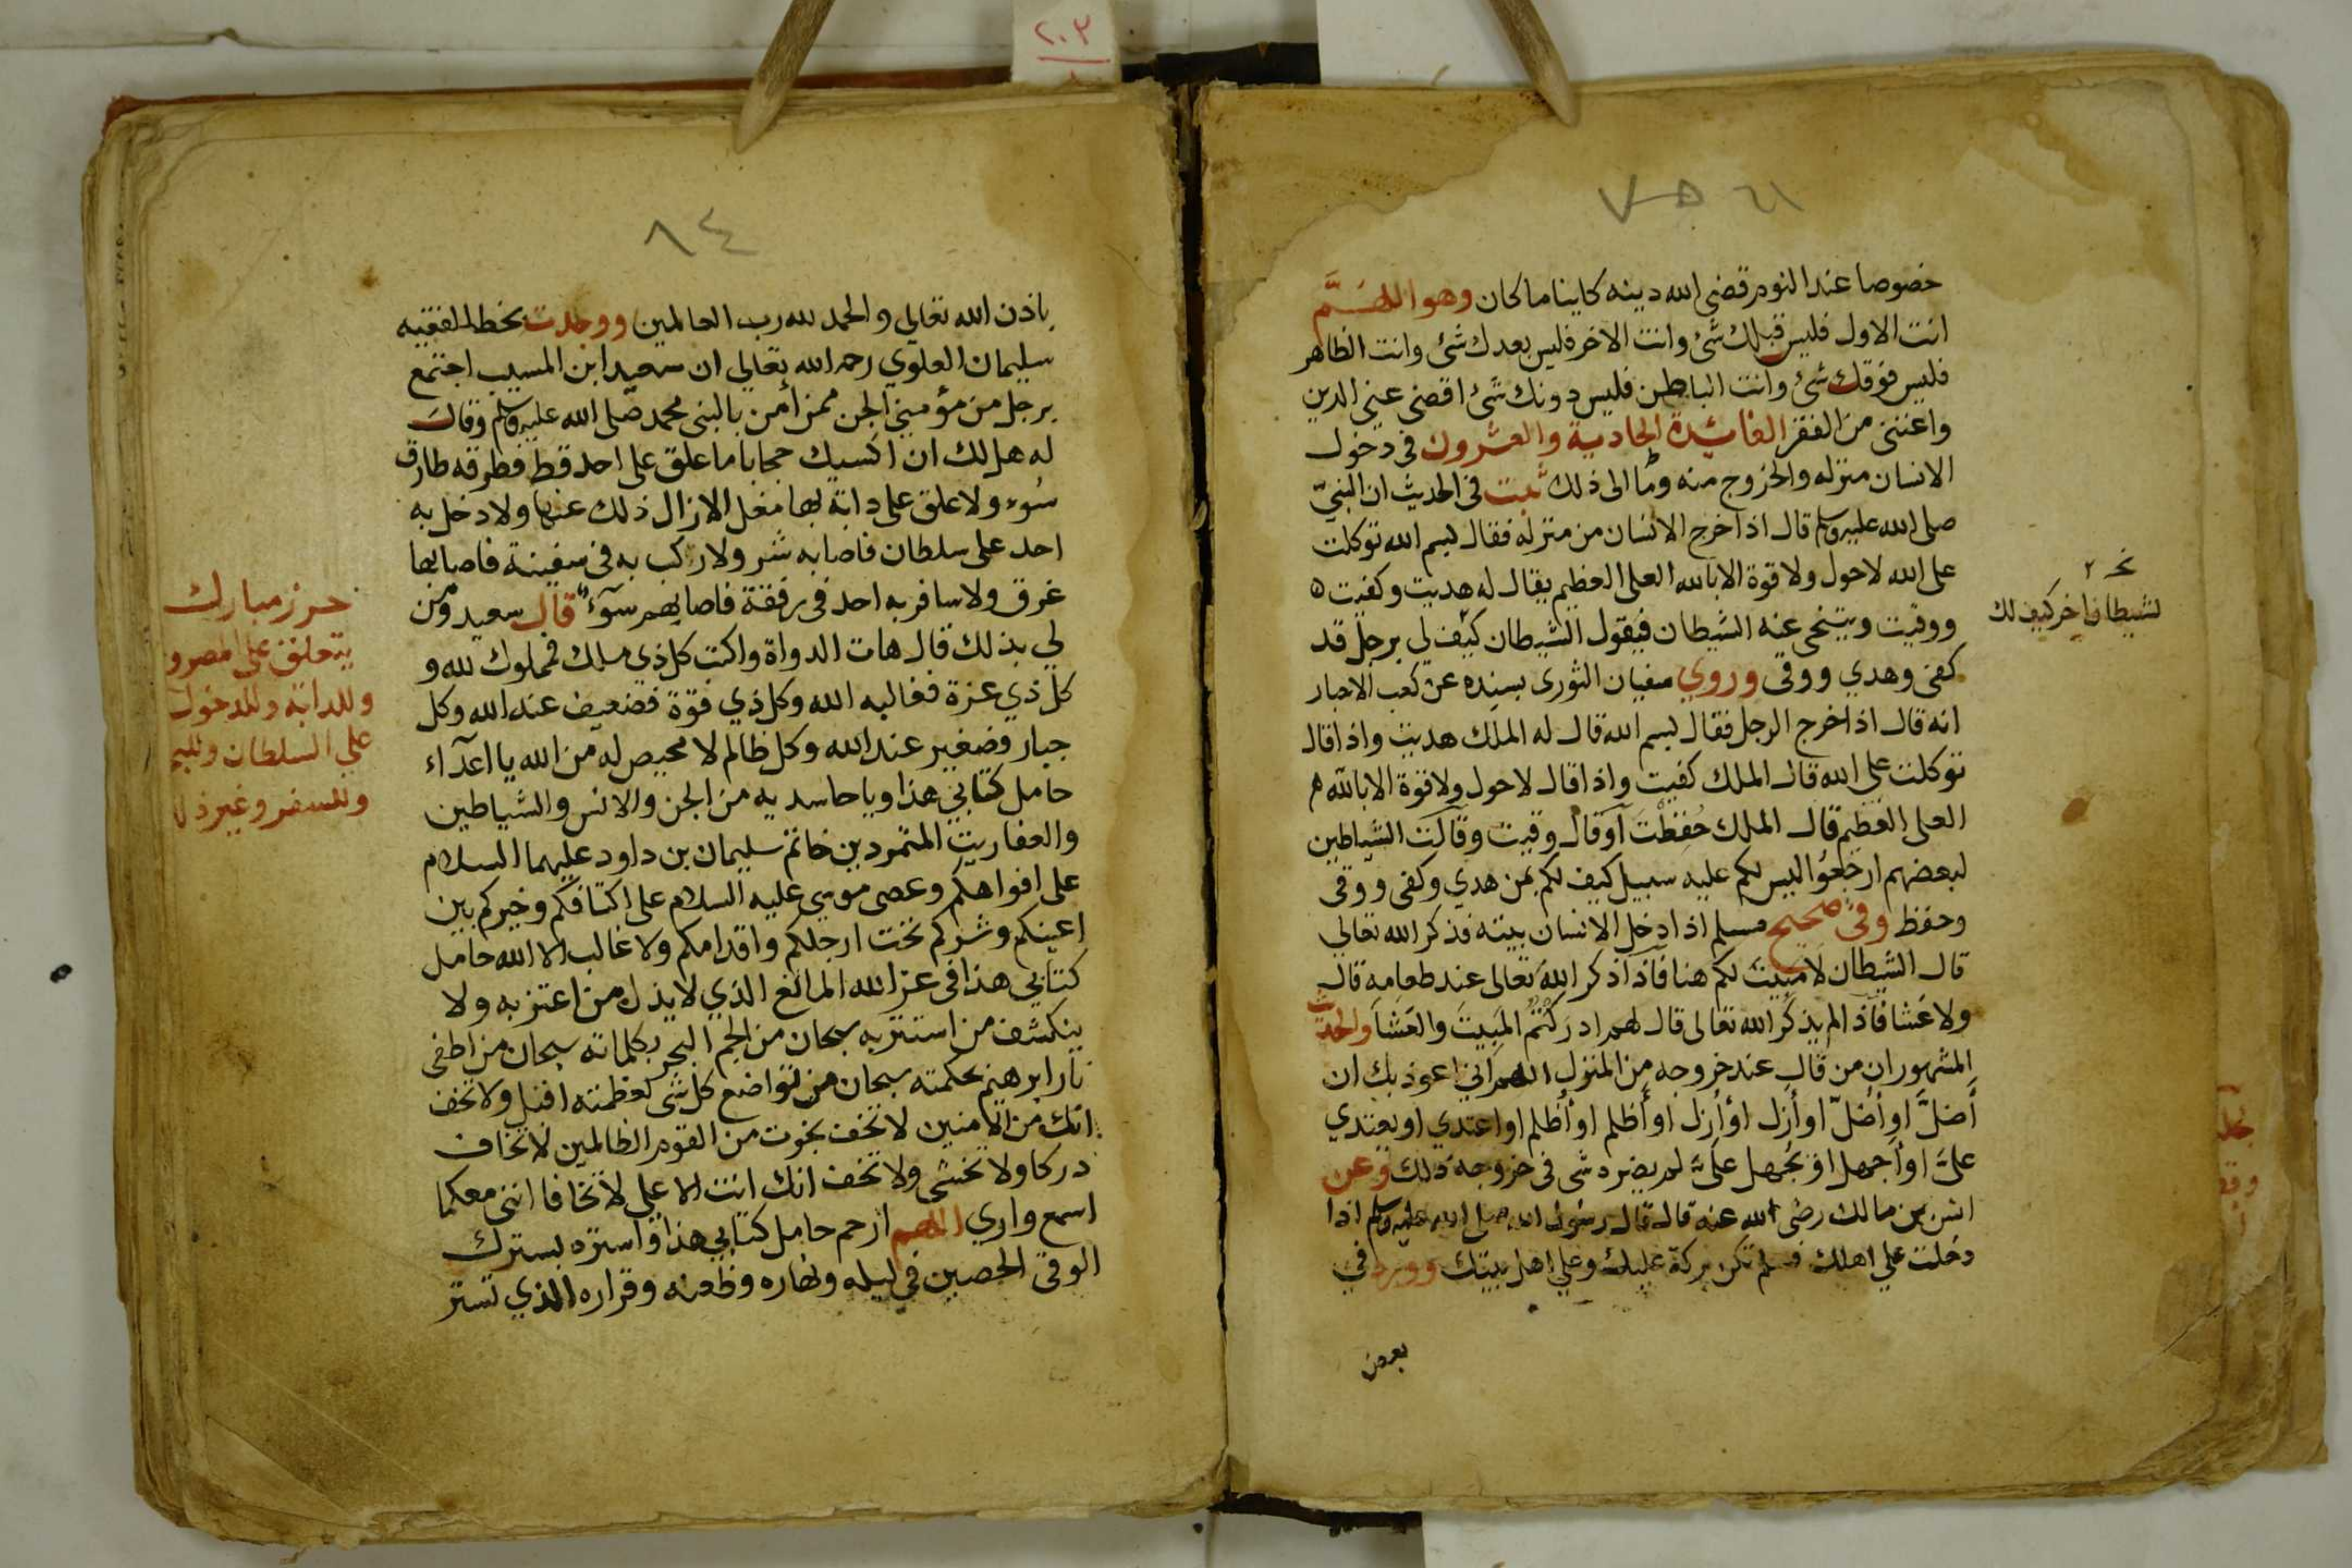 ٢٠٣
خصوصا عند النوم قضى الله دينه كاينا ما كان وهو اللهم
انت الاول فليس قبلك شئ وانت الاخر فليس بعدك شئ وانت الظاهر
فليس فوقك شئ وانت الباطن فليس دونك شئ اقضى عني الدين
واغنني من الفقر الفائدة الحادية والعشرون في دخول
الانسان منزله والخروج منه وما الى ذلك ثبت في الحديث ان النبيّ
صلى الله عليه وسلم قال اذا خرج الانسان من منزله فقال بسم الله توكلت
على الله لاحول ولا قوة الا بالله العلى العظيم يقال له هديت وكفيت ه
ووقيت ويتنحى عنه الشيطان فيقول الشيطان كيف لي برجل قد
لشيطان اخر كيف لك
كفى وهدي ووقى وروي سفيان الثورى بسنده عن كعب الاحبار
انه قال اذا خرج الرجل فقال بسم الله قال له الملك هديت واذا قال
توكلت على الله قال الملك كفيت واذا قال لاحول ولا قوة الا بالله
العلى العظيم قال الملك حُفظْتَ اَوقال وقيت وقالت الشياطين
لبعضهم ارجعوا ليس لكم عليه سبيل كيف لكم بمن هدي وكفى ووقى
وحفظ وفي صحيح مسلم اذا دخل الانسان بيته فذكر الله تعالي
قال الشيطان لا مبيت لكم هنا فاذا ذكر الله تعالى عند طعامه قال
ولا عَشا فاذا لم يذكر الله تعالى قال لهم ادركتم المبيتَ والعَشَا والحديث
المشهور ان من قال عند خروجه من المنزل اللهم اني اعوذ بك ان
أضلَّ او أُضلّ او أزل او أُزل او أظلم او أُظلم او اعتدي او يعتدي
علىَّ او أجهل او يُجهل علىَّ لم يضره شى في خروجه ذلك وعن
انس بن مالك رضى الله عنه قال قال رسول الله صلى الله عليه وسلم اذا
دخلت علي اهلك فسلم تكن بركة عليك وعلي اهل بيتك وورد في
بعض
٨٤
باذن الله تعالي والحمد لله رب العالمين ووجدت بخط الفقيه
سليمان العلوي رحمه الله تعالي ان سعيد ابن المسيب اجتمع
برجل من مؤمني الجن ممن أمن بالنبى محمد صلى الله عليه وسلم وقال
له هل لك ان اكسيك حجابا ما علق على احد قط فطرقه طارق
سُوء ولا علق على دابة بها مغل الا زال ذلك عنها ولا دخل به
احد على سلطان فاصابه شر ولا ركب به في سفينة فاصابها
غرق ولا سافر به احد في رفقة فاصابهم سوء قال سعيد ومن
لي بذلك قال هات الدواة واكتب كل ذي ملك فمملوك لله و
كل ذي عزة فغالبه الله وكل ذي قوة فضعيف عند الله وكل
جبار فصغير عند الله وكل ظالم لا محيص له من الله يا اعداء
حامل كتابي هذا ويا حاسديه من الجن والانس والشياطين
والعفاريت المتمردين خاتم سليمان بن داود عليهما السلام
على افواهكم وعصى موسى عليه السلام على اكتافكم وخيركم بين
اعينكم وشركم تحت ارجلكم واقدامكم ولا غالب الا الله حامل
كتابي هذا في عز الله المانع الذي لا يذل من اعتز به ولا
ينكشف من استتر به سبحان من الجم البحر بكلماته سبحان من اطفى
نار ابرهيم بحكمته سبحان من تواضع كل شى لعظمته اقبل ولا تخف
انك من الآمنين لا تخف نجوت من القوم الظالمين لا تخاف
دركا ولا تخشى ولا تخف انك انت الاعلي لا تخافا انني معكما
اسمع واري اللهم ارحم حامل كتابي هذا واستره بسترك
الوقى الحصين في ليله ونهاره وظعنه وقراره الذي تستر
حرز مبارك
يتعلق على المصرو
وللدابة وللدخول
علي السلطان
وللسفر وغير ذلك